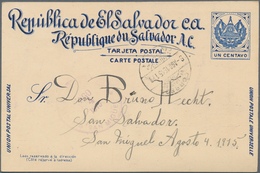 República de El Salvador c.a.
République du Salvador A.C.
TARJETA POSTAL
CARTE POSTALE
UN CENTAVO
UNION POSTAL UNIVERSAL
UNION POSTALE UNIVERSELLE
Sr. Don Bruno Hecht.
San Salvador.
San Miguel Agosto 4. 1895.